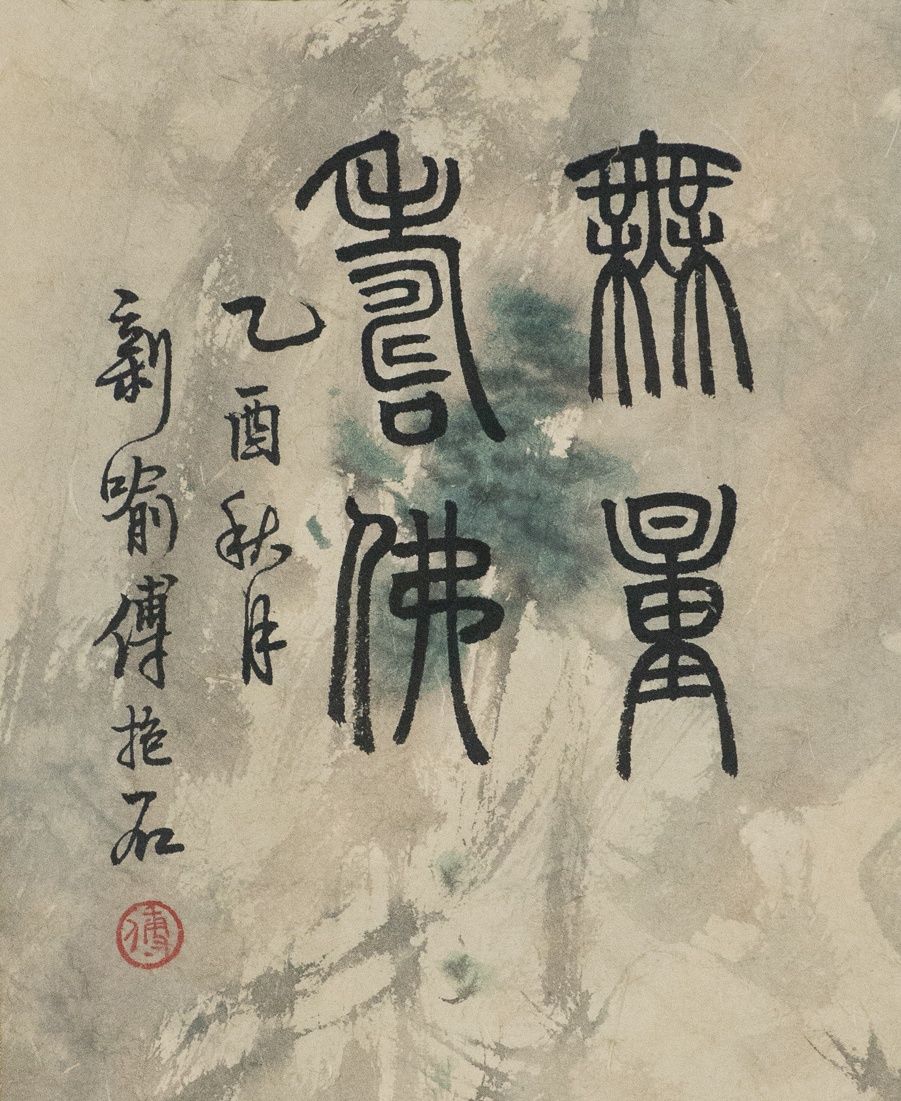 無量
壽佛
乙酉秋月
新喻傅抱石
傅